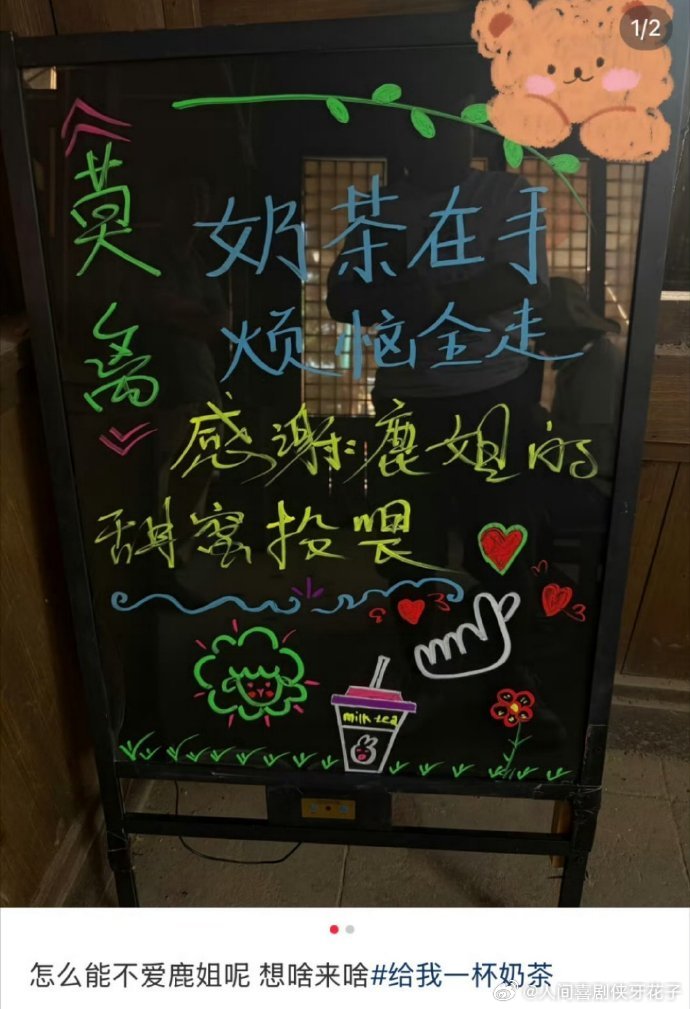 1/2
《莫离》
奶茶在手
烦恼全走
感谢鹿姐的
甜蜜投喂
milk tea
怎么能不爱鹿姐呢 想啥来啥#给我一杯奶茶
@人间喜剧侠牙花子